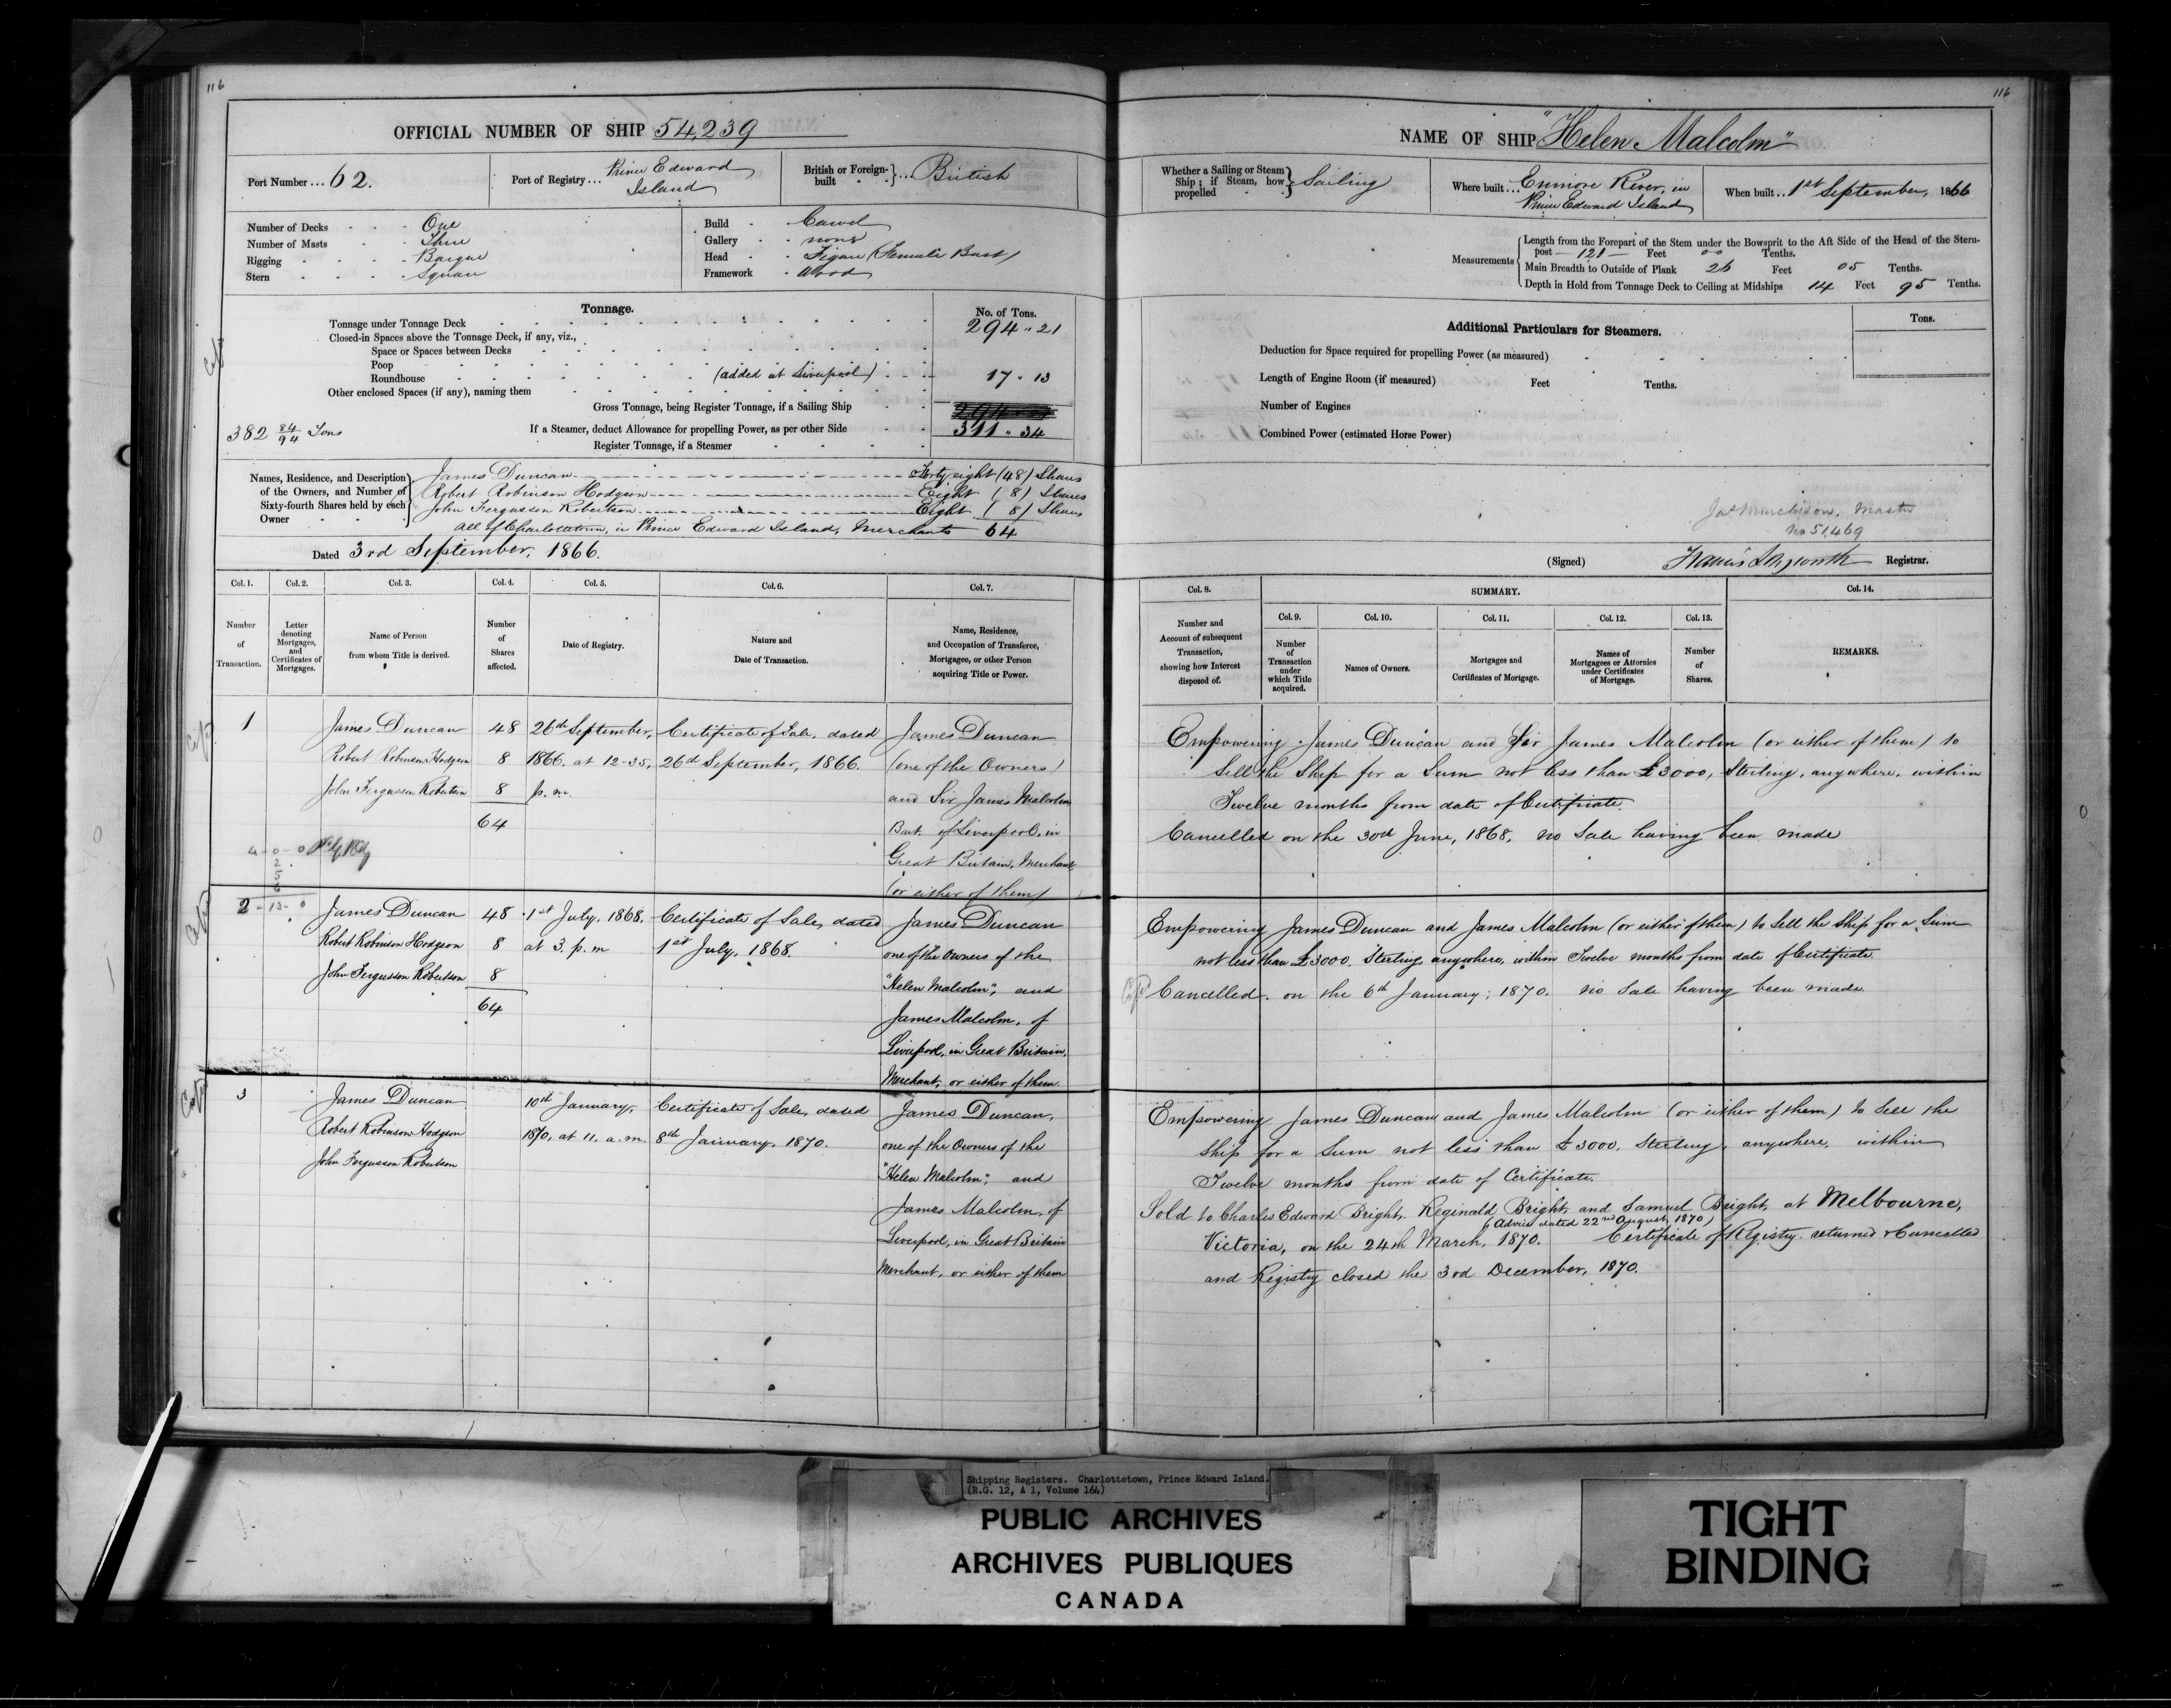 116
OFFICIAL NUMBER OF SHIP 54,239
Port Number ... 62.
Port of Registry ... Prince Edward Island
British or Foreign-built } ... British
Number of Decks One
Number of Masts Three
Rigging Barque
Stern Square
Build Carvel
Gallery none
Head Figure (Female Bust)
Framework Wood
Tonnage.
No. of Tons.
Tonnage under Tonnage Deck 294 " 21
Closed-in Spaces above the Tonnage Deck, if any, viz.,
Space or Spaces between Decks
Poop
Roundhouse (added at Liverpool) 17 " 13
Other enclosed Spaces (if any), naming them
Gross Tonnage, being Register Tonnage, if a Sailing Ship
If a Steamer, deduct Allowance for propelling Power, as per other Side 311 " 34
Register Tonnage, if a Steamer
382 84/94 Tons
Names, Residence, and Description of the Owners, and Number of Sixty-fourth Shares held by each Owner
James Duncan Forty eight (48) Shares
Robert Robinson Hodgson Eight (8) Shares
John Fergusson Robertson Eight (8) Shares
All of Charlottetown, in Prince Edward Island, Merchants 64
Dated 3rd September, 1866.
Col. 1. Col. 2. Col. 3. Col. 4. Col. 5. Col. 6. Col. 7.
Number of Transaction.
Letter denoting Mortgages, and Certificates of Mortgages.
Name of Person from whom Title is derived.
Number of Shares affected.
Date of Registry.
Nature and Date of Transaction.
Name, Residence, and Occupation of Transferee, Mortgagee, or other Person acquiring Title or Power.
1 James Duncan 48 26th September, Certificate of Sale, dated James Duncan
Robert Robinson Hodgson 8 1866. at 12-35, 26th September, 1866. (one of the Owners)
John Fergusson Robertson 8 p.m. and Sir James Malcolm
64 Bart. of Liverpool, in
Great Britain, Merchant,
(or either of them)
2 James Duncan 48 1st July, 1868. Certificate of Sale, dated James Duncan
Robert Robinson Hodgson 8 at 3. p. m 1st July, 1868. one of the Owners of the
John Fergusson Robertson 8 "Helen Malcolm", and
64 James Malcolm, of
Liverpool, in Great Britain,
Merchant, or either of them.
3 James Duncan 10th January, Certificate of Sale, dated James Duncan,
Robert Robinson Hodgson 1870, at 11. a.m. 8th January, 1870. one of the Owners of the
John Fergusson Robertson "Helen Malcolm", and
James Malcolm, of
Liverpool, in Great Britain
Merchant, or either of them
116
NAME OF SHIP "Helen Malcolm"
Whether a Sailing or Steam Ship; if Steam, how propelled } Sailing
Where built ... Enmore River, in Prince Edward Island
When built .. 1st September, 1866
Measurements
Length from the Forepart of the Stem under the Bowsprit to the Aft Side of the Head of the Stern-
post — 121 — Feet 00 Tenths.
Main Breadth to Outside of Plank 26 Feet 05 Tenths.
Depth in Hold from Tonnage Deck to Ceiling at Midships 14 Feet 95 Tenths.
Additional Particulars for Steamers.
Tons.
Deduction for Space required for propelling Power (as measured)
Length of Engine Room (if measured) Feet Tenths.
Number of Engines
Combined Power (estimated Horse Power)
Jas Murchison, Master
No 51,469
(Signed) Francis Longworth Registrar.
Col. 8. SUMMARY. Col. 14.
Col. 9. Col. 10. Col. 11. Col. 12. Col. 13.
Number and Account of subsequent Transaction, showing how Interest disposed of.
Number of Transaction under which Title acquired.
Names of Owners.
Mortgages and Certificates of Mortgage.
Names of Mortgagees or Attornies under Certificates of Mortgage.
Number of Shares.
REMARKS.
Empowering James Duncan and Sir James Malcolm (or either of them) to
Sell the Ship for a Sum not less than £3000, Sterling, anywhere, within
Twelve months from date of Certificate.
Cancelled on the 30th June, 1868, no Sale having been made
Empowering James Duncan and James Malcolm (or either of them) to Sell the Ship for a Sum
not less than £3000. Sterling anywhere, within Twelve months from date of Certificate.
Cancelled. on the 6th January, 1870. no Sale having been made
Empowering James Duncan and James Malcolm (or either of them) to Sell the
Ship for a Sum not less than £3000. Sterling, anywhere, within
Twelve months from date of Certificate.
Sold to Charles Edward Bright, Reginald Bright, and Samuel Bright, at Melbourne,
(Advice dated 22nd August, 1870)
Victoria, on the 24th March, 1870. Certificate of Registry returned & Cancelled
and Registry closed the 3rd December, 1870.
Shipping Registers. Charlottetown, Prince Edward Island.
(R.G. 12, A 1, Volume 164)
PUBLIC ARCHIVES
ARCHIVES PUBLIQUES
CANADA
TIGHT
BINDING